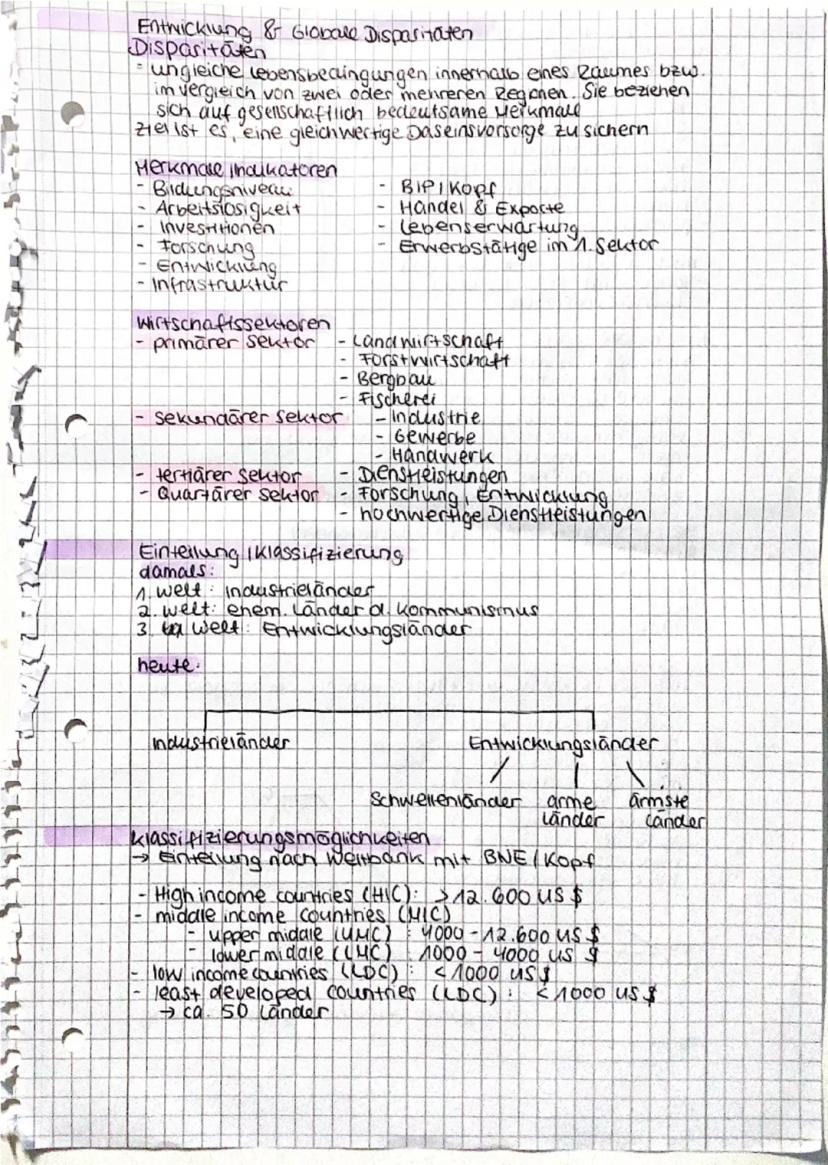 Entwicklung & Globale Disparitäten
Disparitäten
= ungleiche Lebensbedingungen innerhalb eines Raumes bzw.
im vergleich von zwei oder mehreren Regonen. Sie beziehen
sich auf gesellschaftlich bedeutsame Merkmale
Ziel ist es, eine gleichwertige Daseinsvorsorge zu sichern
Merkmale Indikatoren
- Bildungsniveau
- Arbeitslosigkeit
- Investitionen
- Forschung
- Entwicklung
- Infrastruktur
- BIP/Kopf
- Handel & Exporte
- Lebenserwartung
- Erwerbstätige im 1. Sektor
Wirtschaftssektoren
- primärer Sektor - Landwirtschaft
- Forstwirtschaft
- Bergbau
- Fischerei
- sekundärer Sektor - Industrie
- Gewerbe
- Handwerk
- tertiärer Sektor - Dienstleistungen
- Quartärer Sektor - Forschung, Entwicklung
- hochwertige Dienstleistungen
Einteilung / Klassifizierung
damals:
1. Welt: Industrieländer
2. Welt: ehem. Länder d. Kommunismus
3. Welt: Entwicklungsländer
heute:
Industrieländer Entwicklungsländer
Schwellenländer arme ärmste
Länder Länder
Klassifizierungsmöglichkeiten
→ Einteilung nach Weltbank mit BNE/Kopf
- High income countries (HIC): >12.600 US $
- middle income countries (MIC)
- upper middle (UMC): 4000 - 12.600 US $
- lower middle (LMC): 1000 - 4000 US $
- low income countries (LDC): <1000 US $
- least developed countries (LDC): <1000 US $
→ ca. 50 Länder